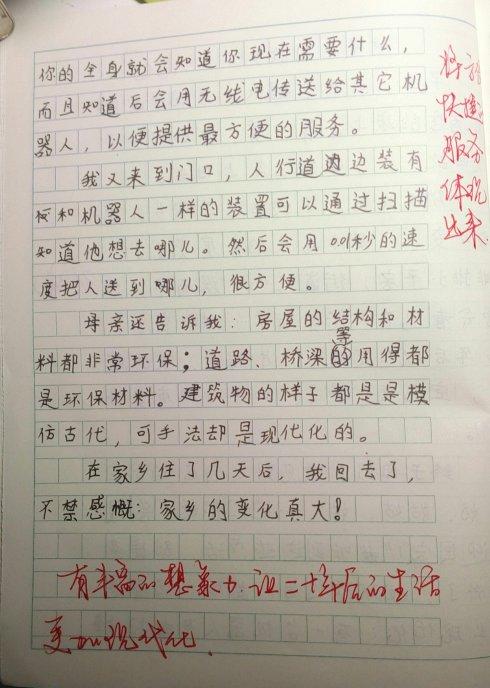 你的全身就会知道你现在需要什么，
而且知道后会用无线电传送给其它机
器人，以便提供最方便的服务。
我又来到门口，人行道边边装有
和机器人一样的装置可以通过扫描
知道他想去哪儿。然后会用0.01秒的速
度把人送到哪儿，很方便。
母亲还告诉我：房屋的结构和材
料都非常环保；道路、桥梁等的用得都
是环保材料。建筑物的样子都是是模
仿古代，可手法却是现代化的。
在家乡住了几天后，我回去了，
不禁感慨：家乡的变化真大！
有丰富的想象力.让二十年后的生活
更加现代化.
将
快捷
服务
体现
出来.